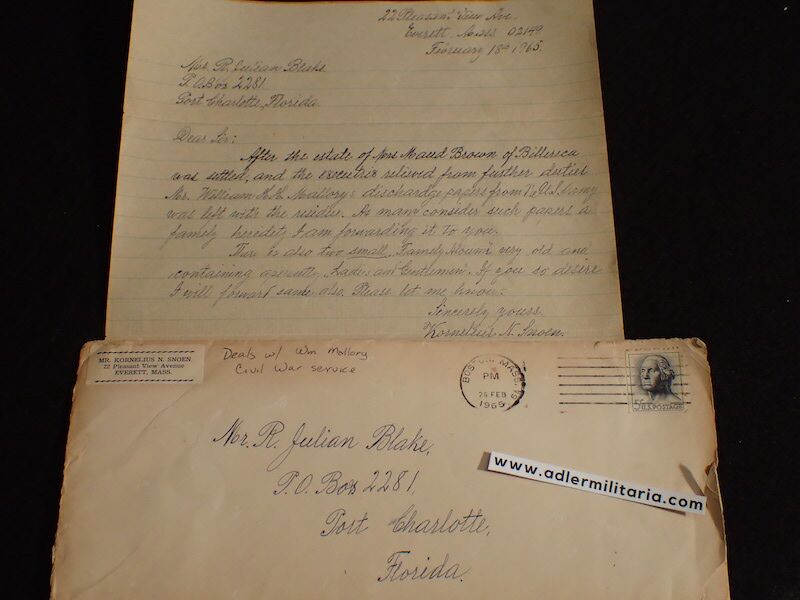 22 Pleasant View Ave.
Everett, Mass. 02149
February 18th 1965.
Mr. R. Julian Blake
P.O. Box 2281.
Port Charlotte, Florida
Dear Sir:
After the estate of Mrs Maud Brown of Billerica
was settled, and the executrix relieved from further duties
Mr. William H.H. Mallory's dischardge papers from U.S. Army
was left with the residue. As many consider such papers a
family heredity I am forwarding it to you.
There is also two small, Family Albums very old and
containing Ladies and Gentlemen. If you so desire
I will forward same also. Please let me know.
Sincerely yours.
Kornelius N. Snoen.
MR. KORNELIUS N. SNOEN
22 Pleasant View Avenue
EVERETT, MASS.
Deals w/ Wm Mallory
Civil War service
BOSTON, MASS.
PM
FEB
1965
5¢ U.S. POSTAGE
Mr. R. Julian Blake,
P.O. Box 2281,
Port Charlotte,
Florida.
www.adlermilitaria.com